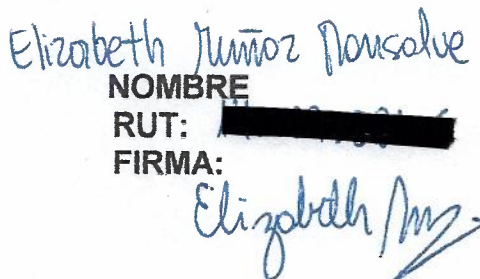 Elizabeth Muñoz Monsalve
NOMBRE
RUT:
FIRMA:
Elizabeth Muñ.